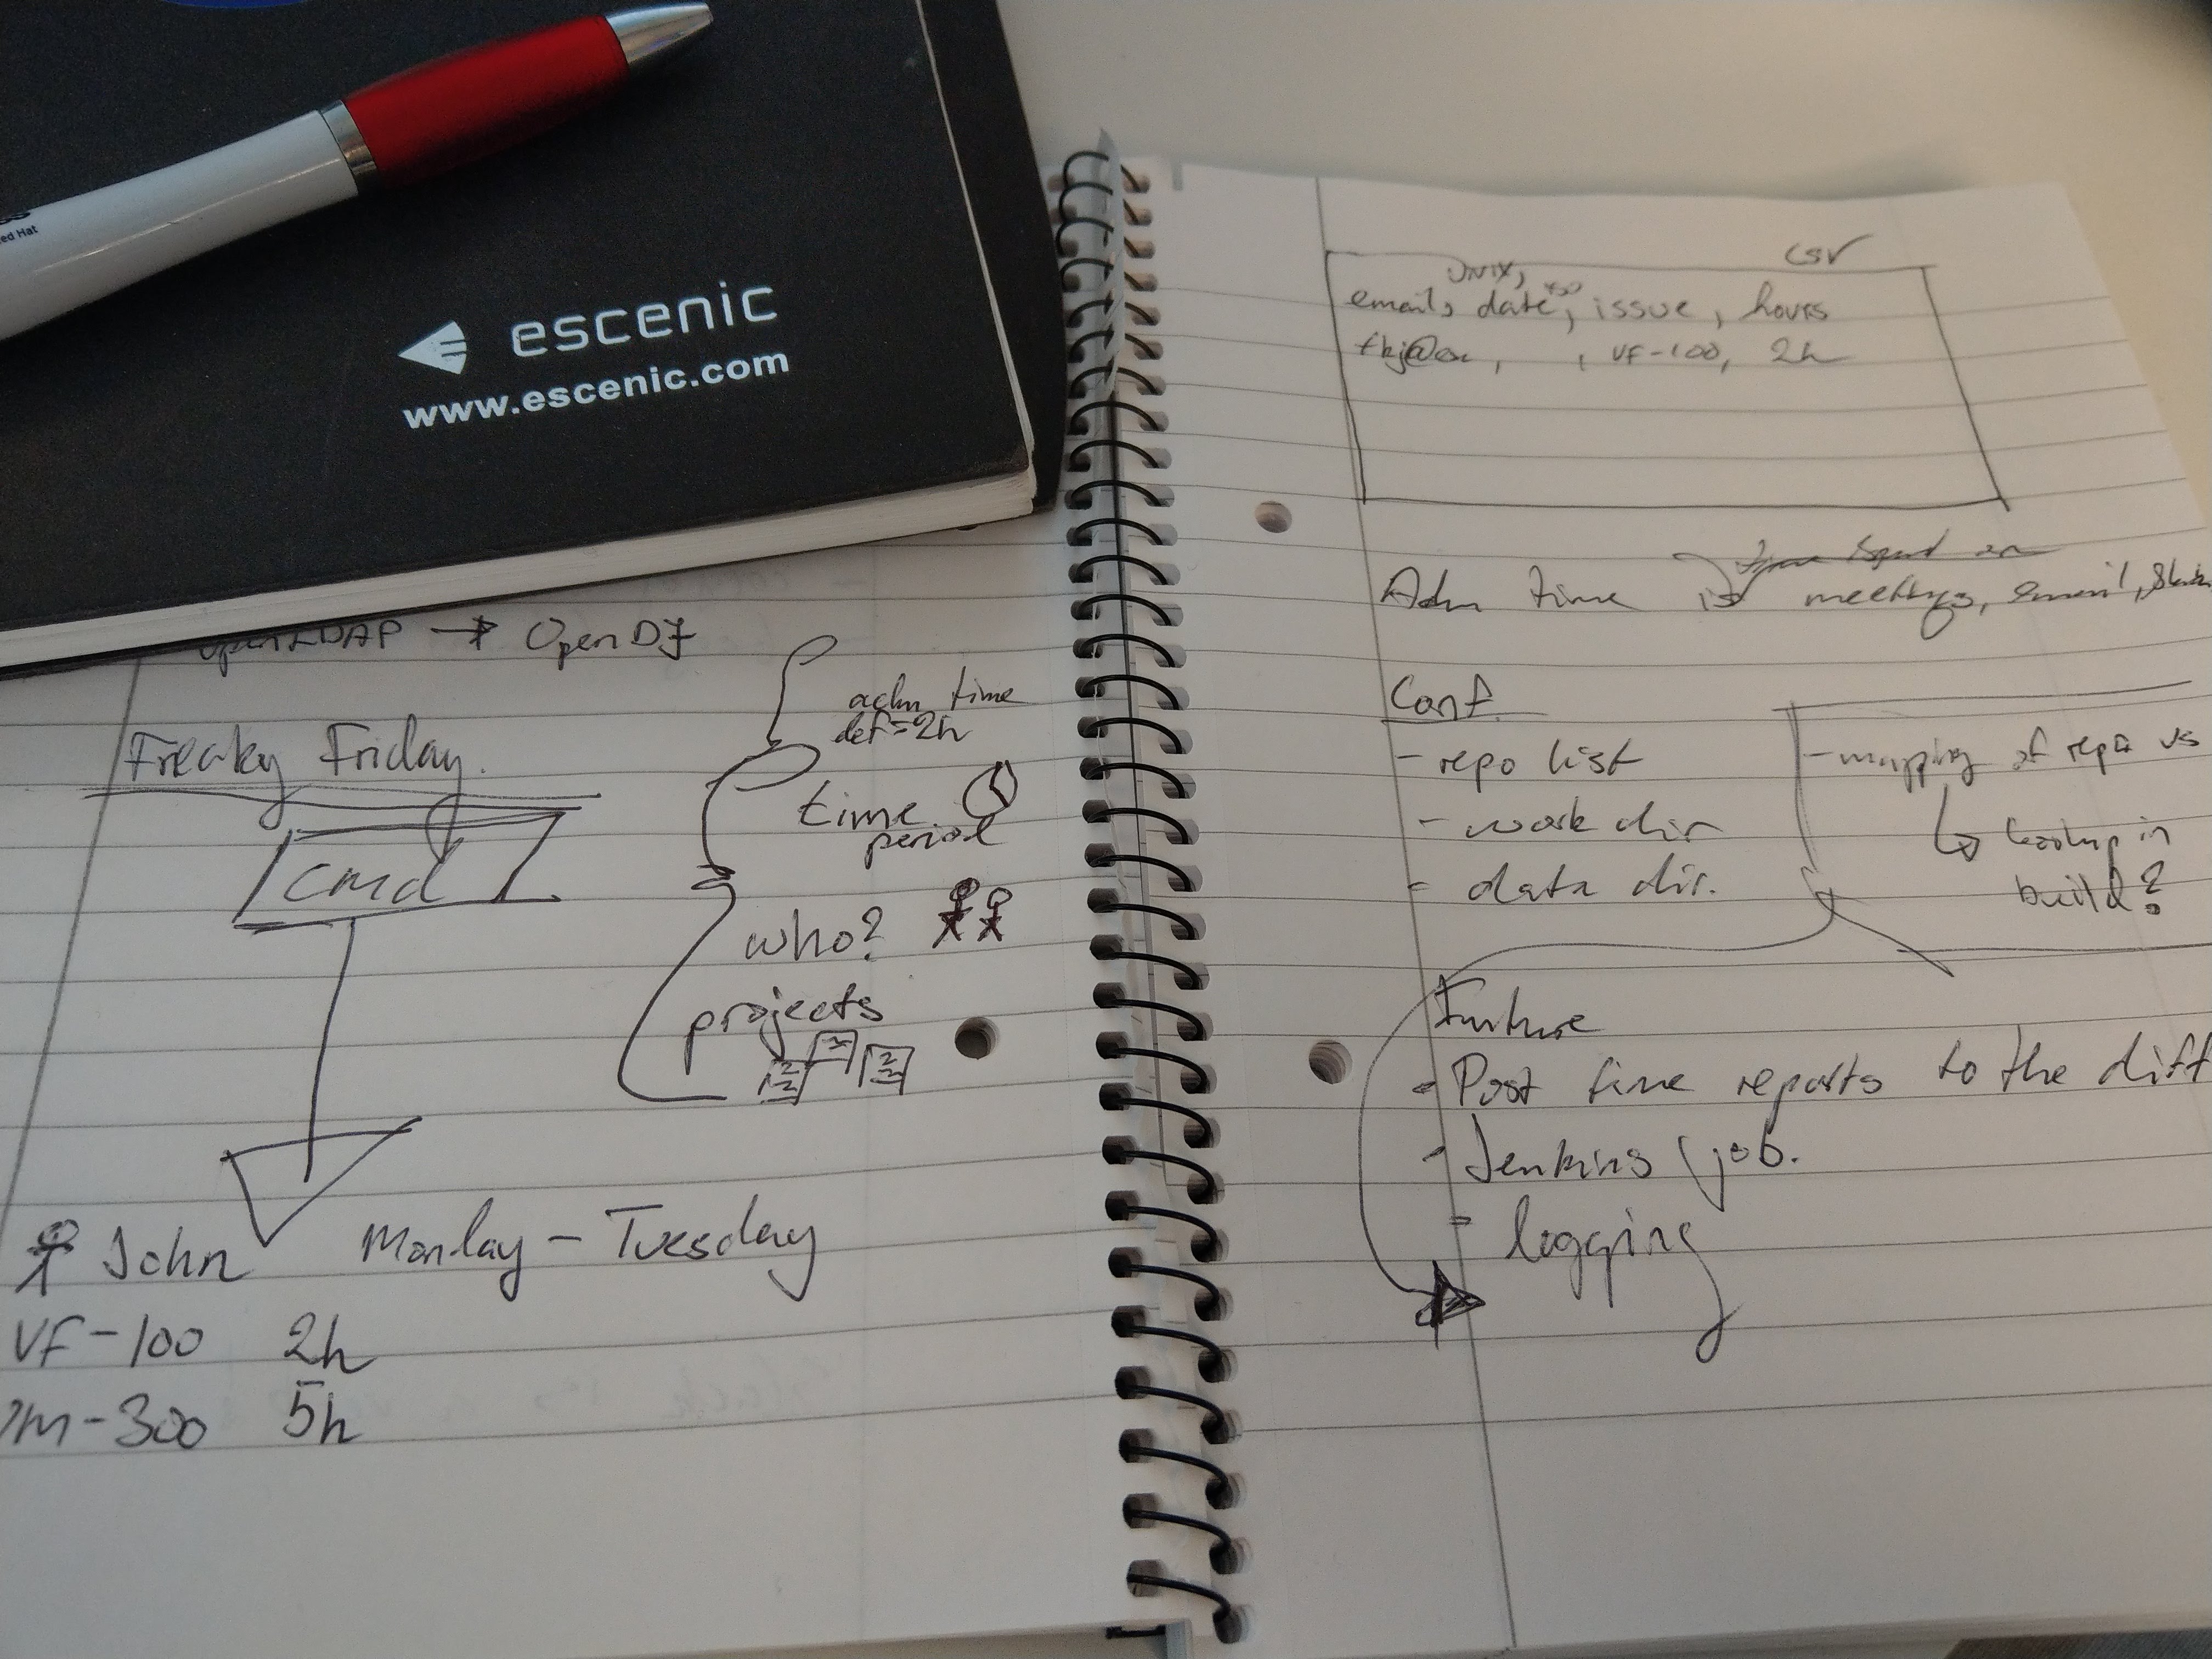 ed Hat
escenic
www.escenic.com
OpenLDAP → OpenDJ
Freaky Friday.
cmd
adm time
def=2h
time
period
who?
projects
John Monday - Tuesday
VF-100 2h
M-300 5h
CSV
UNIX,
email, date, issue, hours
tkj@esc, , VF-100, 2h
time spent on
Adm time is meetings, email,
Conf.
- repo list
- work dir
- data dir.
- mapping of repo vs
↳ lookup in
build?
Future
- Post time reports to the diff
- Jenkins job.
- logging